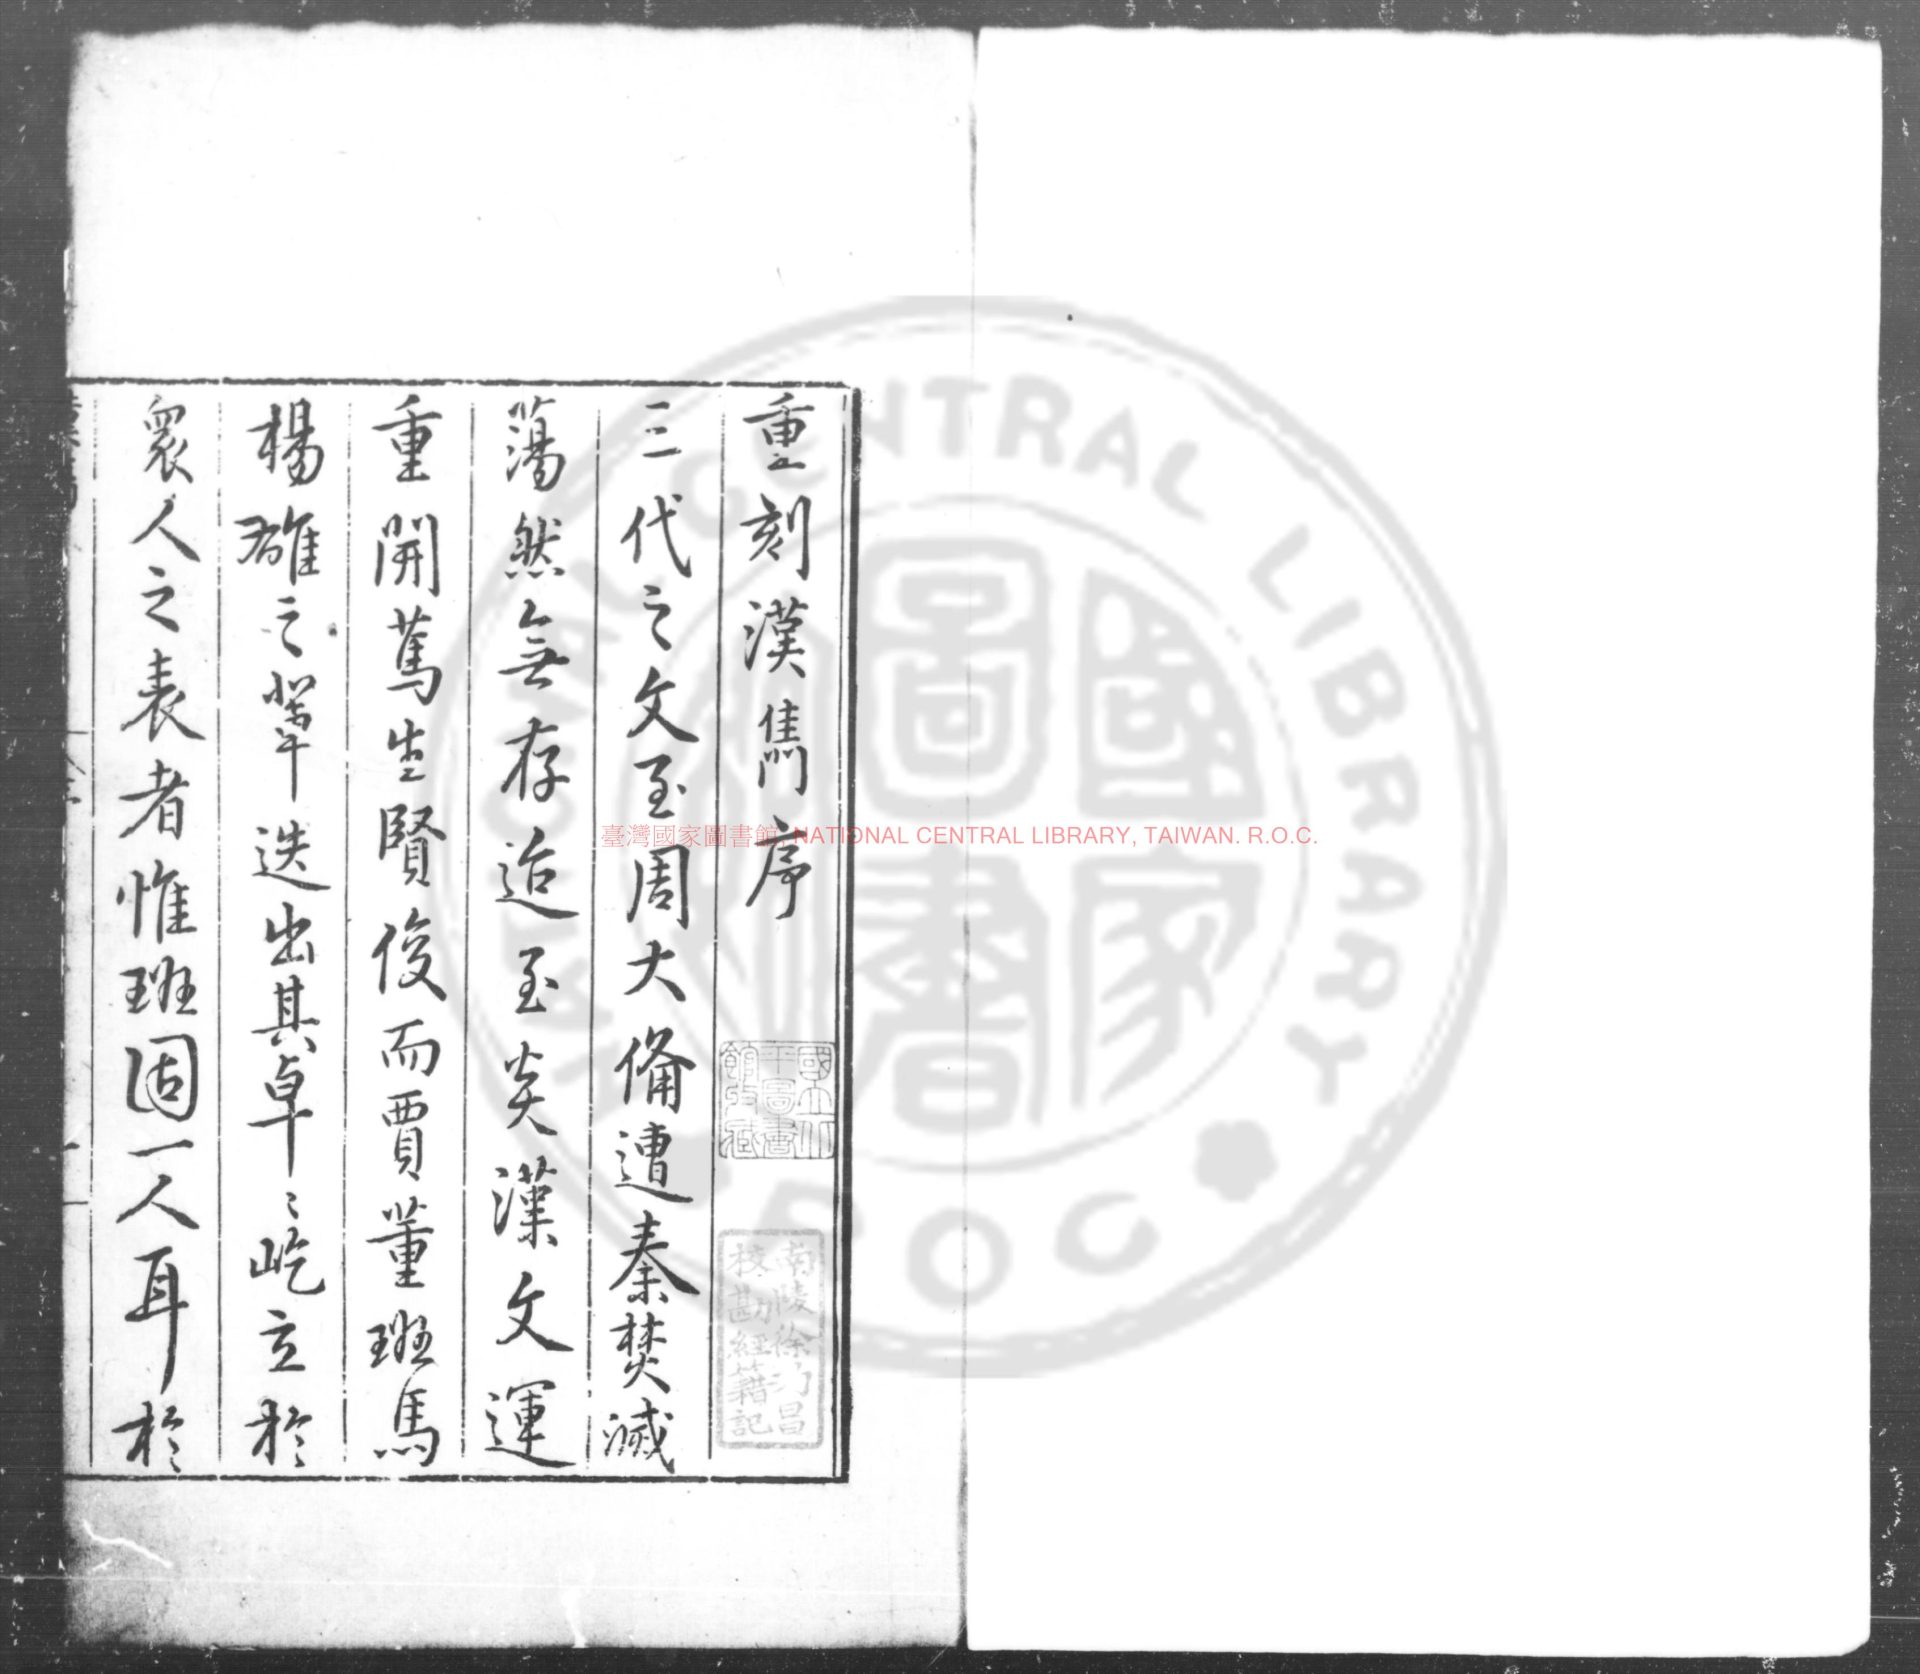 重刻漢雋序
三代之文至周大備遭秦焚滅
蕩然無存迨至炎漢文運
重開篤生賢俊而賈董班馬
楊雄之輩迭出其卓〻屹立於
衆人之表者惟班固一人耳於
國立北
平圖書
館收藏
南陵徐乃昌
校勘經籍記
臺灣國家圖書館, NATIONAL CENTRAL LIBRARY, TAIWAN. R.O.C.
NATIONAL CENTRAL LIBRARY
R.O.C
國家
圖書